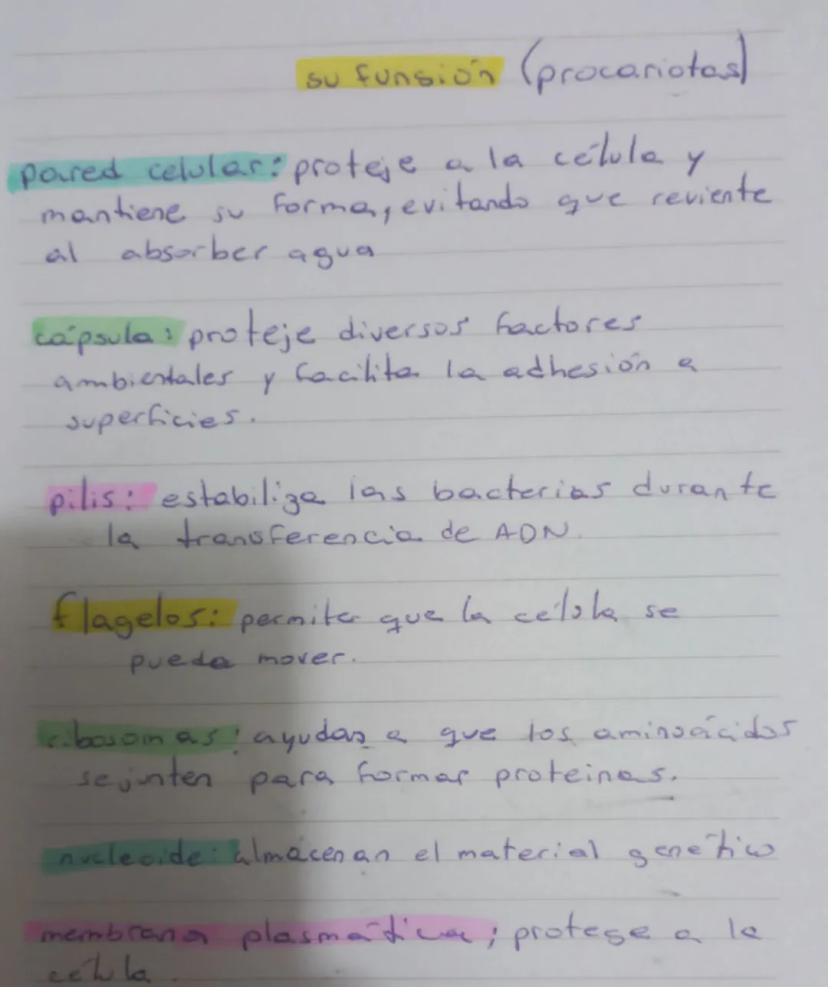 su funsión (procariotas)
pared celular: proteje a la célula y
mantiene su forma, evitando que reviente
al absorber agua
cápsula: proteje diversos factores
ambientales y facilita la adhesión a
superficies.
pilis: estabiliza las bacterias durante
la transferencia de ADN.
flagelos: permite que la célula se
pueda mover.
ribosomas: ayudan a que los aminoácidos
se junten para formar proteinas.
nucleoide: almacenan el material genético
membrana plasmática; protege a la
célula.